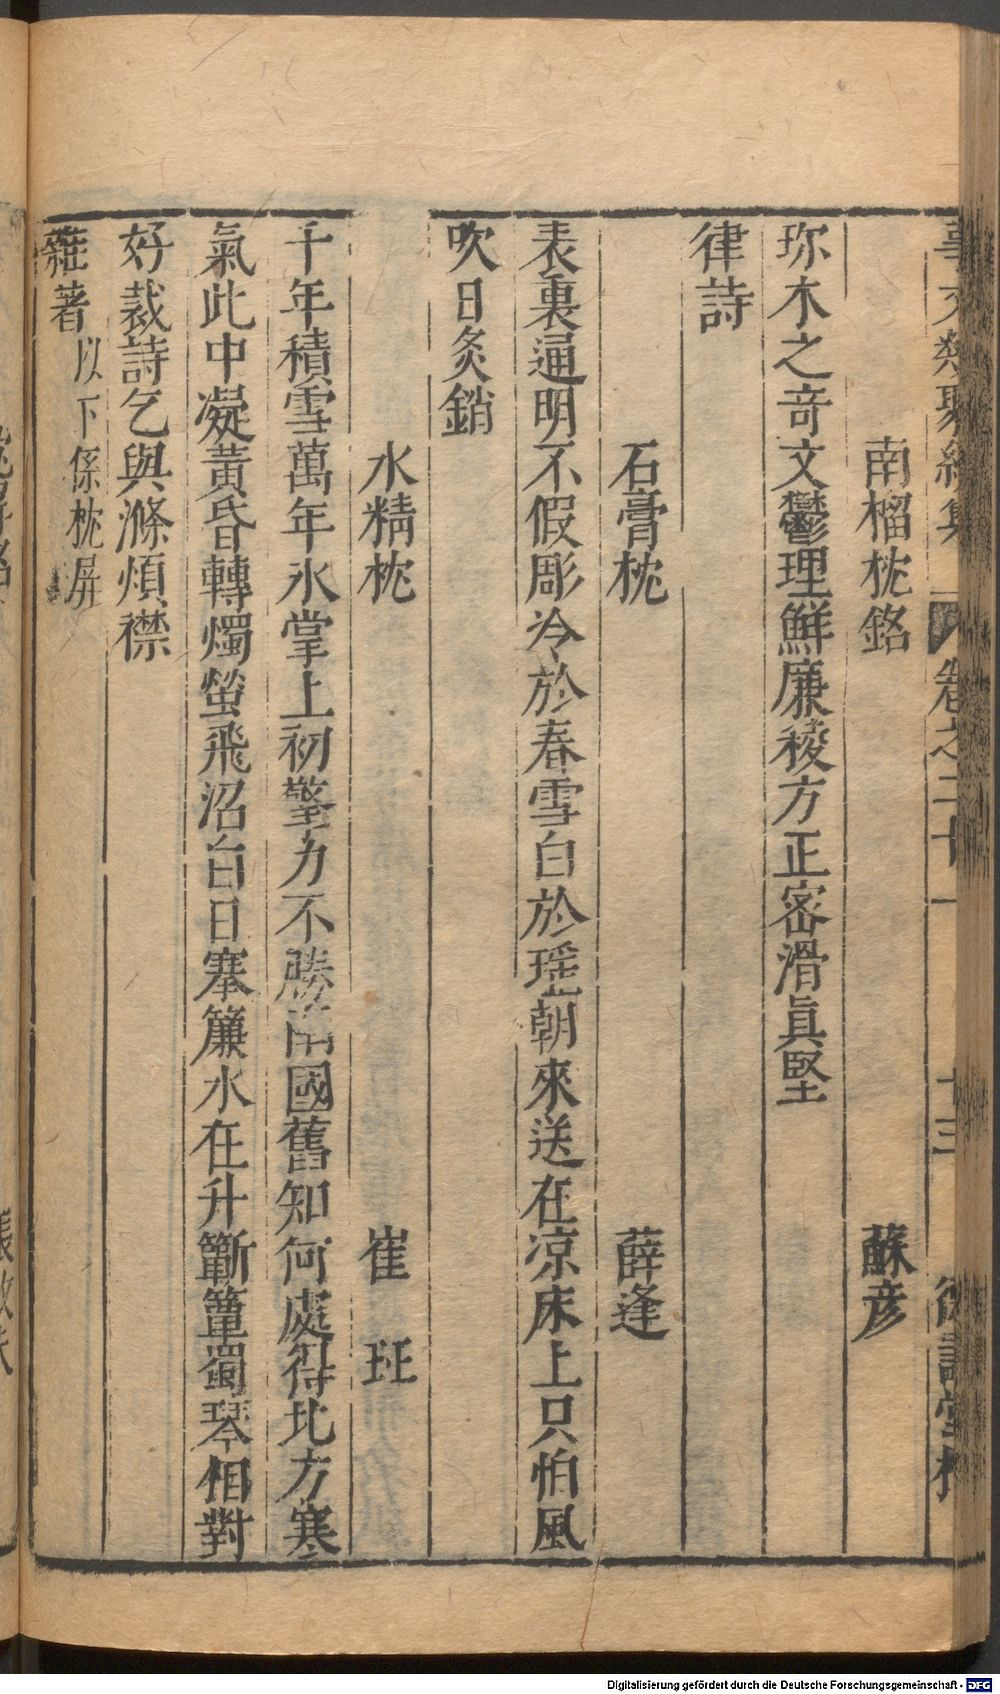 事文類聚續集 卷之二十一 十三 德壽堂梓
南榴枕銘 蘇彦
珎木之竒文鬱理鮮廉稜方正宻滑眞堅
律詩
石膏枕 薛逢
表裏通明不假彫冷於春雪白於瑶朝來送在凉床上只怕風
吹日炙銷
水精枕 崔珏
千年積雪萬年氷掌上初擎力不勝南國舊知何處得北方寒
氣此中凝黃昏轉燭螢飛沼白日搴簾水在升簟蜀琴相對
好裁詩乞與滌煩襟
雜著以下係枕屏
Digitalisierung gefördert durch die Deutsche Forschungsgemeinschaft - DFG